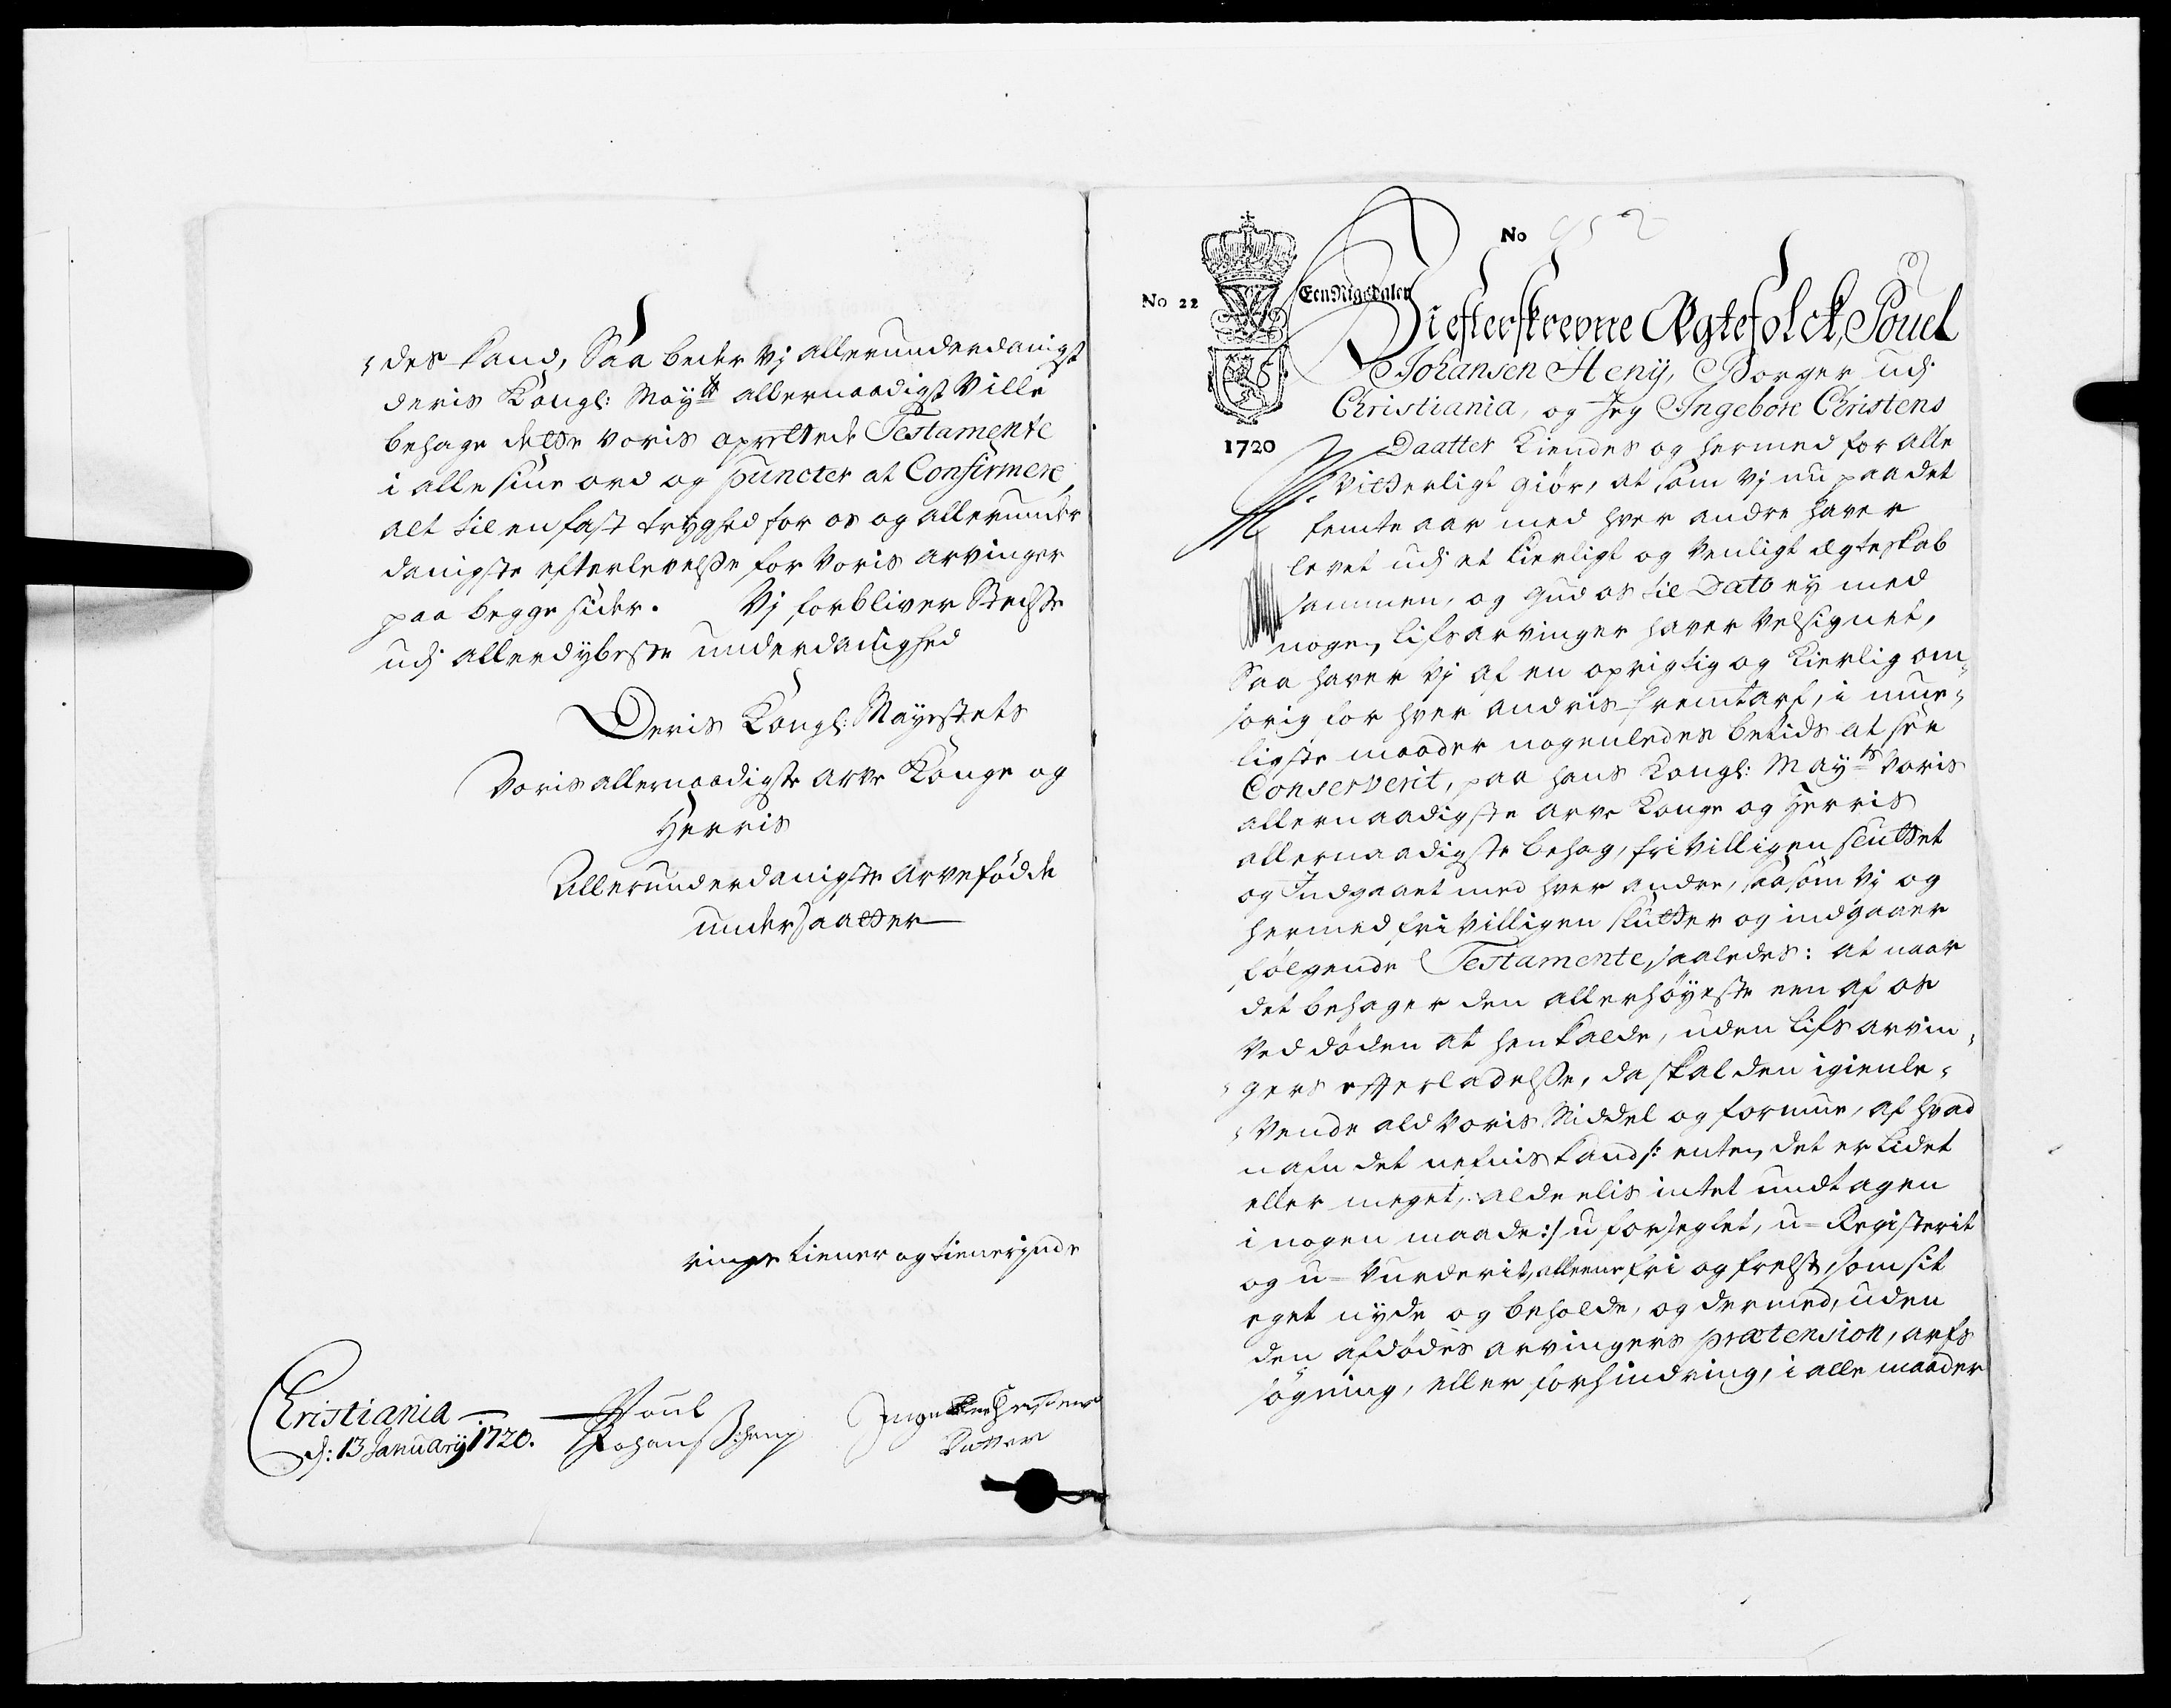 des kand, Saa beder Vj allerunderdanigst
deris Kongl: Mayᵗᵗ allernaadigst Ville
behage dette voris oprettede Testamente
i alle sine ord og puncter at Confirmere,
alt til en fast tryghed for os og allerunder
danigste efterlevelsse for Voris arvinger
paa begge sider. Vj forbliver Stedsse
udj allerdybeste underdanighed
Deris Kongl: Mayestets
Voris allernaadigste arve Konge og
Herris
Allerunderdanigste arvefødde
undersaatter
ringe tiener og tienerinde
Christiania
d: 13 January 1720.
Poul
Johansß: heny
Inge Christens
Datter
No 952
No 22
Een Rigsdaler
1720
Vi efterskrevne Ægtefolck, Pouel
Johansen Heny, Borger udj
Christiania, og Jeg Ingebore Christens
Daatter Kiendes og hermed for alle
vitterligt giør, at som Vj nu paa det
femte aar med hver andre haver
levet udj et kierligt og Venligt ægteskab
sammen, og Gud os til Dato ey med
nogen lifsarvinger haver Velsignet,
Saa haver Vj af en oprigtig og Kierlig om,
sorig for hver andris fremtarf, i mue,
ligste maader nogenledes betids at see
Conserverit, paa hans Kongl: Mayᵗˢ Voris
allernaadigste arve Konge og Herris
allernaadigste behag, frivilligen sluttet
og Indgaaet med hver andre, saasom Vj og
hermed frivilligen slutter og indgaaer
følgende Testamente, saaledes: at naar
det behager den allerhøyeste een af os
Ved døden at henkalde, uden lifs arvin,
gers efterladelsse, da skal den igienle,
Vende ald Voris Middel og formue, af hvad
nafn det nefnis kand /: enten det er lidet
eller meget, aldeelis intet undtagen
i nogen maade :/ u forseglet, u= Registerit
og u= Vurderit, alleene fri og frelst, som sit
eget nyde og beholde, og dermed, uden
den afdødes arvingers prætension, arfs
søgning, eller forhindring, i alle maader